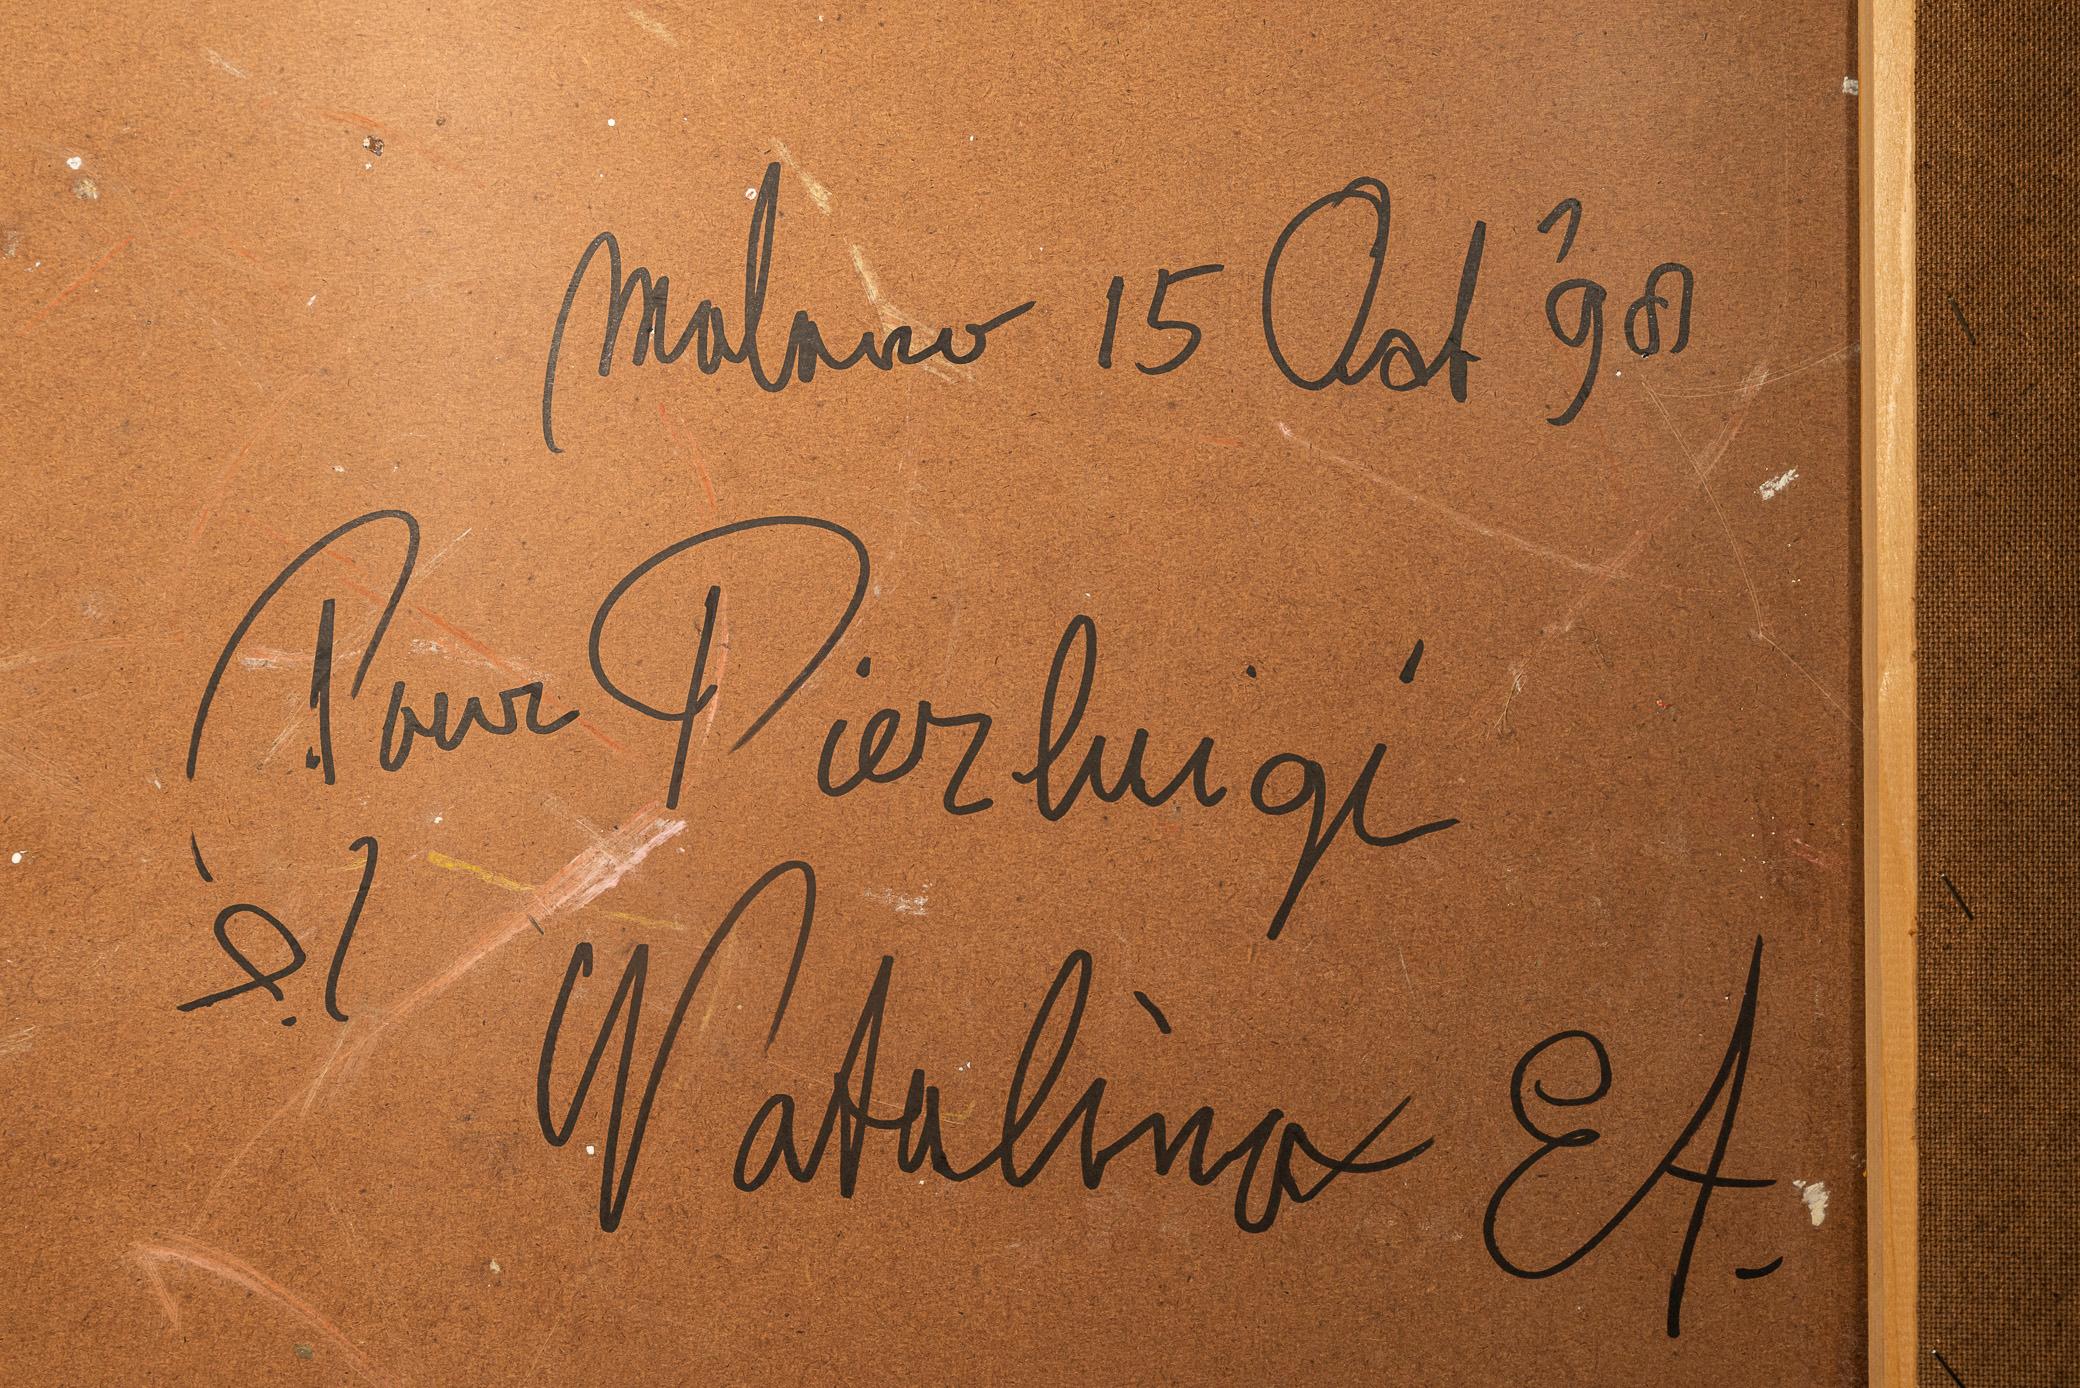 Milano 15 Oct '98
Pour Pierluigi
et
Natalina EA.